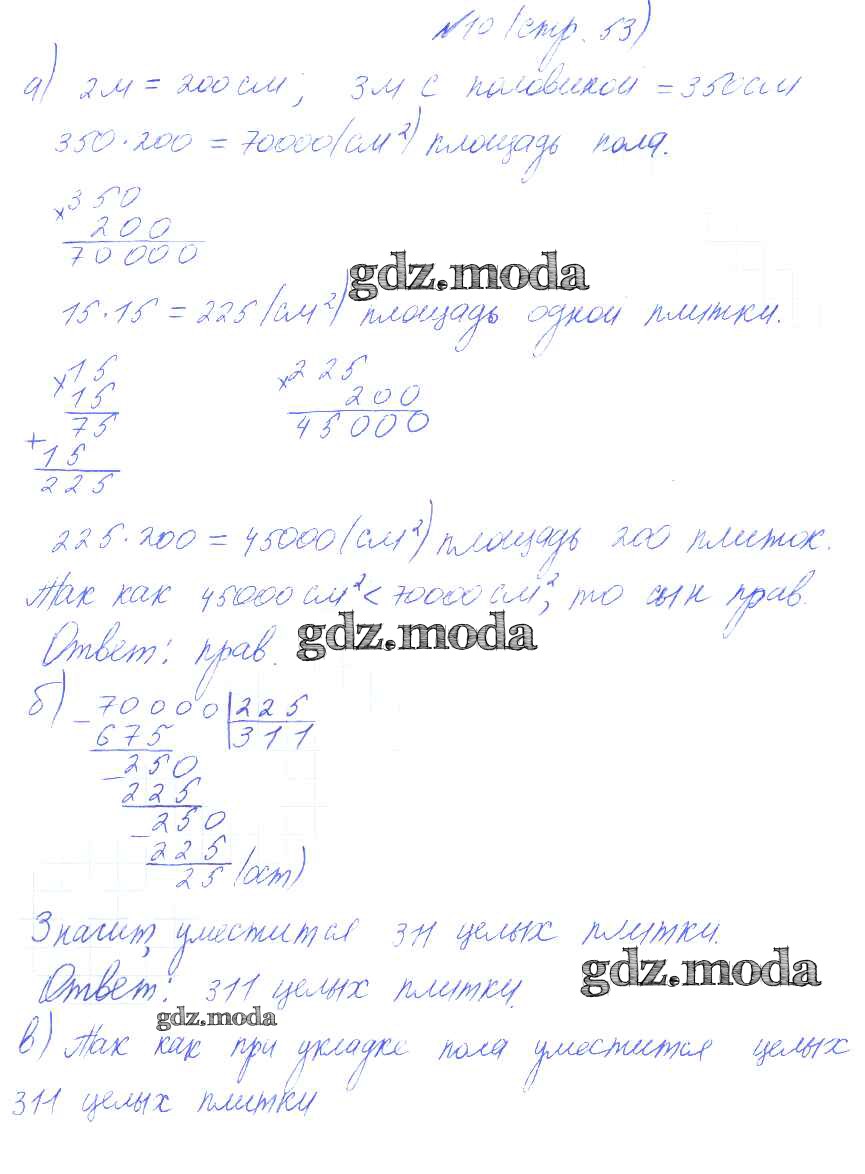 №10 (стр. 53)
а) 2м = 200см; 3м с половиной = 350см
350·200 = 70000(см²) площадь пола.
×350
200
70000
gdz.moda
15·15 = 225(см²) площадь одной плитки.
×15
15
75
+
15
225
×225
200
45000
225·200 = 45000(см²) площадь 200 плиток.
Так как 45000см² < 70000см², то сын прав.
Ответ: прав.
gdz.moda
б) –70000|225
675 311
–250
225
–250
225
25 (ост)
Значит, уместится 311 целых плитки.
gdz.moda
Ответ: 311 целых плитки.
gdz.moda
в) Так как при укладке пола уместится целых
311 целых плитки